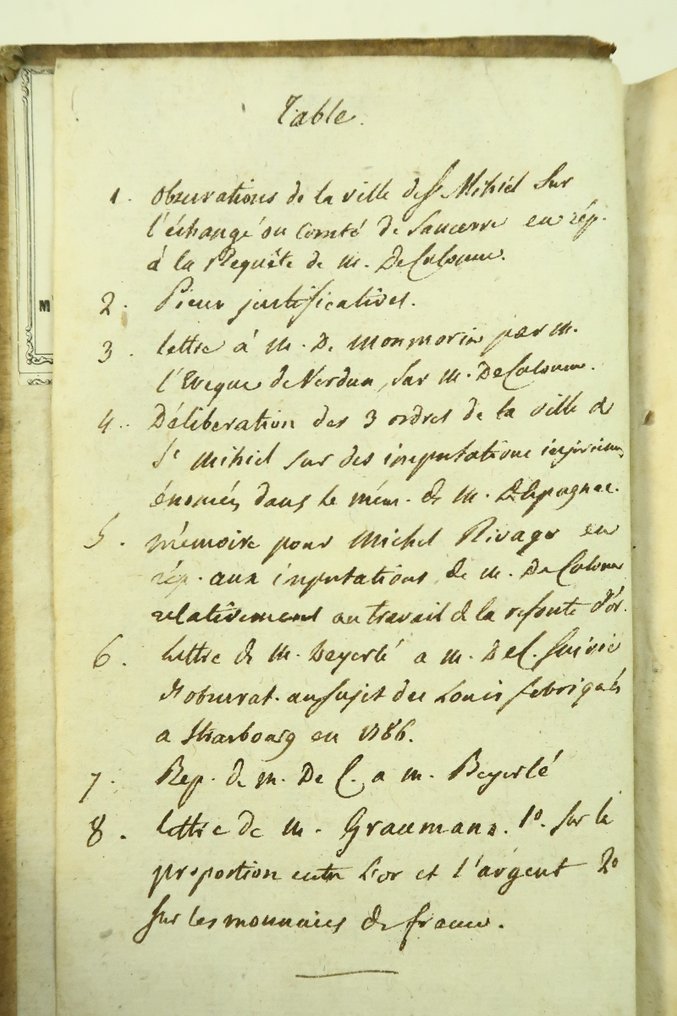 Table.
1. Observations de la ville de St Mihiel sur
l'échange du Comté de Sancerre en rép.
à la Requête de M. De Calonne.
2. Pieces justificatives.
3. lettre à M. De Monmorin par M.
l'Eveque de Verdun, sur M. De Calonne.
4. Déliberation des 3 ordres de la ville de
St Mihiel sur des imputations injurieuses
énoncées dans le mém. de M. Delepagnac.
5. mémoire pour Michel Rivage en
rép. aux imputations de M. De Calonne
relativement au travail de la refonte d'or.
6. lettre de M. Beyerlé a M. De C. suivie
d'observat. au sujet des Louis fabriqués
a Strasbourg en 1786.
7. Rep. de M. De C. a M. Beyerlé
8. lettre de M. Graumann. 1º. sur la
proportion entre l'or et l'argent 2º
sur les monnaies de france.
M